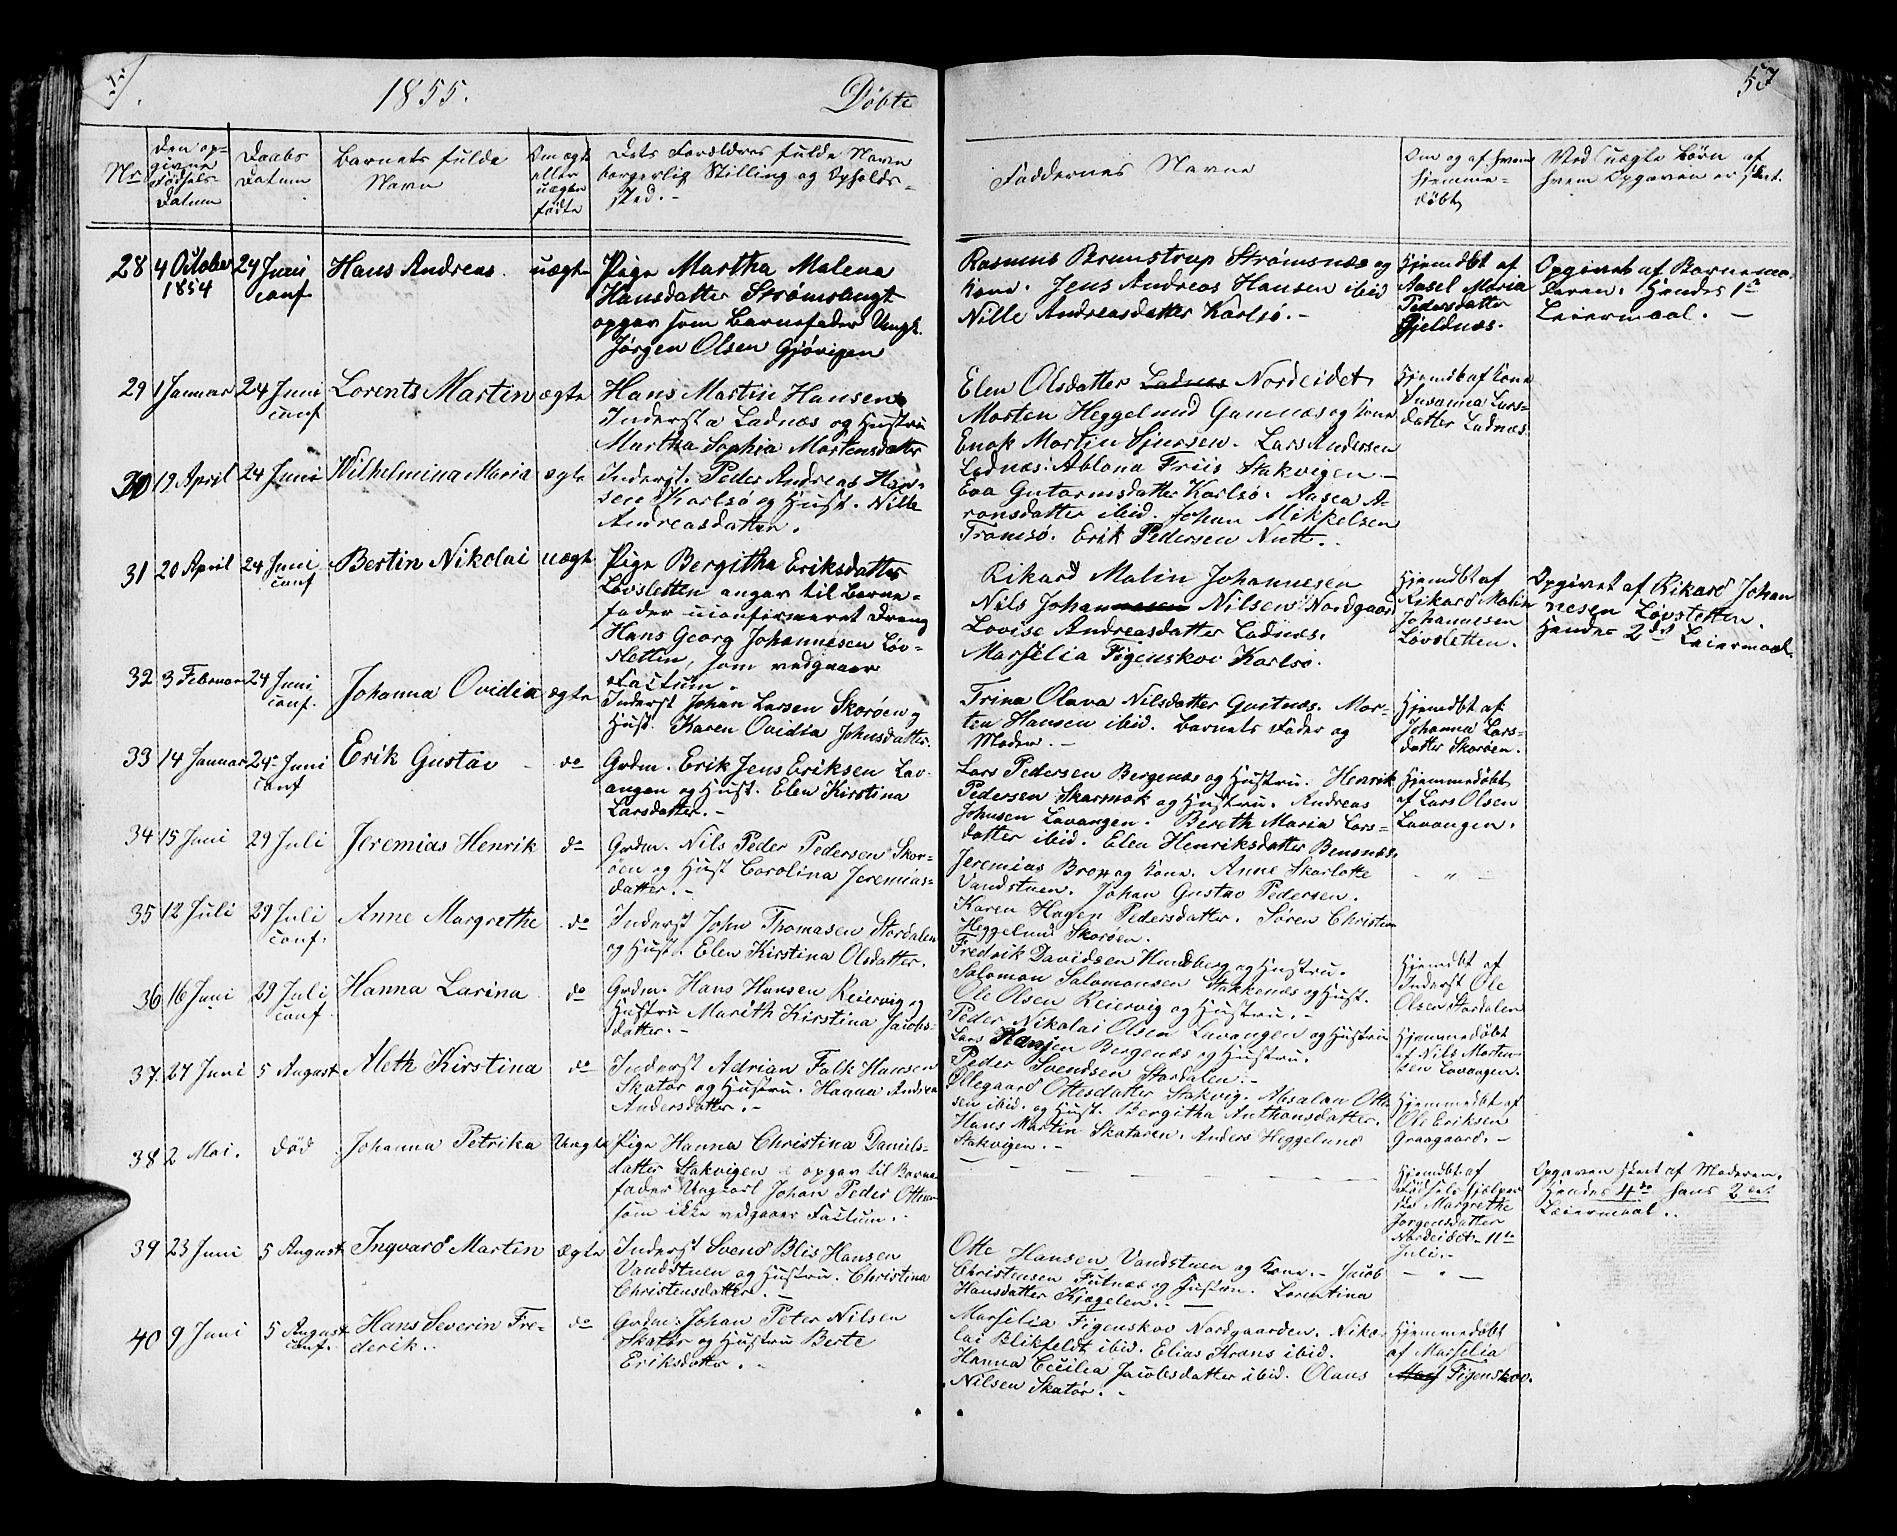 1855.
Døbte
57
Nr
Den op-
givne
Fødsels-
Datum
Daabs
Datum
Barnets fulde
Navn
Om ægte
eller
uægte
fødte
Dets Forældres fulde Navn
borgerlig Stilling og Opholds-
sted.-
Faddernes Navne
Om og af hvem
hjemme-
døbt
Ved uægte Børn af
hvem Opgaven er skeet.
28 4 October 1854 24 Juni conf. Hans Andreas. uægte
Pige Martha Malena
Hansdatter Strømslangt
opgav som Barnefader Ungk.
Jørgen Olsen Gjøvigen
Rasmus Brunstrup Strømsnæs og
Kone. Jens Andreas Hansen ibid
Nille Andreasdatter Karlsø.-
Hjemdbt af
Aasel Maria
Pedersdatter
Gjeldnæs.
Opgivet af Barnemo-
deren. Hendes 1ste
Leiermaal. -
29 1 Januar 24 Juni conf Lorents Martin ægte
Hans Martin Hansen
Indersta Ladnæs og Hustru
Martha Sophia Mortensdatter
Elen Olsdatter Ladnæs Nordeidet
Morten Heggelund Gamnæs og Kone
Enok Martin Sjursen. Lars Andersen
Ladnæs. Ablona Friis Stakvigen.-
Hjemdb af Kone
Susanna Lars-
datter Ladnæs.
30 19 April 24 Juni Wilhelmina Maria ægte
Inderst. Peder Andreas Han-
sen Karlsø og Hust. Nille
Andreasdatter.
Eva Gutormsdatter Karlsø. Aasea A-
ronsdatter ibid. Johan Mikkelsen
Tromsø. Erik Pedersen Nutt.
31 20 April 24 Juni conf Bertin Nikolai uægte
Pige Bergitha Eriksdatter
Løvsletten angav til Barne-
fader uconfirmeret Dreng
Hans Georg Johannesen Løv-
sletten, som vedgaaer
Factum.
Rikard Malin Johannesen
Nils Johannesen Nilsen Nordgaard
Lovise Andreasdatter Ladnæs.
Marselia Figenskov Karlsø.
Hjemdbt af
Rikard Malin
Johannesen
Løvsletten.
Opgivet af Rikard Johan
nesen Løvsletten.
Hendes 2det Leiermaal.
32 3 Februar 24 Juni conf. Johanna Ovidia ægte
Inderst Johan Larsen Skorøen og
Hust. Karen Ovidia Johnsdatter.
Trina Olava Nilsdatter Gustnæs. Mor-
ten Hansen ibid. Barnets Fader og
Moder.-
Hjemdbt af
Johanna Lars-
datter Skorøen.
33 14 Januar 24 Juni conf Erik Gustav do
Grdm. Erik Jens Eriksen Lav-
angen og Hust. Elen Kirstina
Larsdatter.-
Lars Pedersen Bergenæs og Hustru. Henrik
Pedersen Skarmok og Hustru. Andreas
Johnsen Lavangen. Bereth Maria Lars-
datter ibid. Elen Henriksdatter Bensnæs.
Hjemmedøbt
af Lars Olsen
Lavangen.
34 15 Juni 29 Juli Jeremias Henrik do
Grdm. Nils Peder Pedersen Skor-
øen og Hust Carolina Jeremias-
datter.-
Jeremias Brox og Kone. Anne Skarlotte
Vandstuen. Johan Gustav Pedersen.
Karen Hagen Pedersdatter. Søren Christian
Heggelund Skorøen.
- " -
35 12 Juli 29 Juli conf. Anne Margrethe do
Inderst John Thomasen Stordalen
og Hust. Elen Kirstina Olsdatter.
Fredrik Davidsen Hundberg og Hustru.
Salomon Salomonsen Stakkenæs og Hust.
Ole Olsen Reiervig og Hustru.-
Hjemdbt af
Inderst Ole
Olsen Stordalen
36 16 Juni 29 Juli conf Hanna Larina do
Grdm. Hans Hansen Reiervig og
Hustru Marith Kirstina Jacobs-
datter.-
Peder Nikolai Olsen Lavangen og Hustru
Lars Hansen Bergenæs og Hustru.
Peder Svendsen Stordalen.-
Hjemmedøbt
af Nils Morten-
sen Lavangen.
37. 27 Juni 5 August Aleth Kirstina do
Inderst Adrian Falk Hansen
Skatør og Hustru. Hanna Andrea
Andersdatter.-
Ollegaard Ottesdatter Stakvig. Absalon Otte-
sen ibid. og Hust. Bergitha Anthonsdatter.
Hans Martin Skatøren. Anders Heggelund
Stakvigen.-
Hjemmedbt af
Ole Eriksen
Graagaard.-
38 2 Mai. død Johanna Petrika Uægte
Pige Hanna Christina Daniels-
datter Stakvigen opgav til Barne-
fader Ungkarl Johan Peder Ottesen
som ikke vedgaaer Factum.
Hjemdbt af
Fødselshjælper-
ske Margrethe
Jørgensdatter
Nordeidet 11te
Juli.-
Opgaven skeet af Moderen.
Hendes 4de hans 2det
Leiermaal.
39 23 Juni 5 August Ingvard Martin Ægte
Inderst Svend Blis Hansen
Vandstuen og Hustru. Christina
Christensdatter.-
Otte Hansen Vandstuen og Kone.- Jacob
Christensen Futnæs og Hustru. Lorentina
Hansdatter Kjægelen.-
- " -
40 9 Juni 5 August conf. Hans Severin Fre-
derik. do
Grdm: Johan Peter Nilsen
Skatør og Hustru Berte
Eriksdattr.-
Marselia Figenskov Nordgaarden. Niko-
lai Blikfeldt ibid. Elias Krans ibid.
Hanna Cecilia Jacobsdatter ibid. Olaus
Nilsen Skatør.-
Hjemmedøbt
af Marselia
Mars Figenskov.